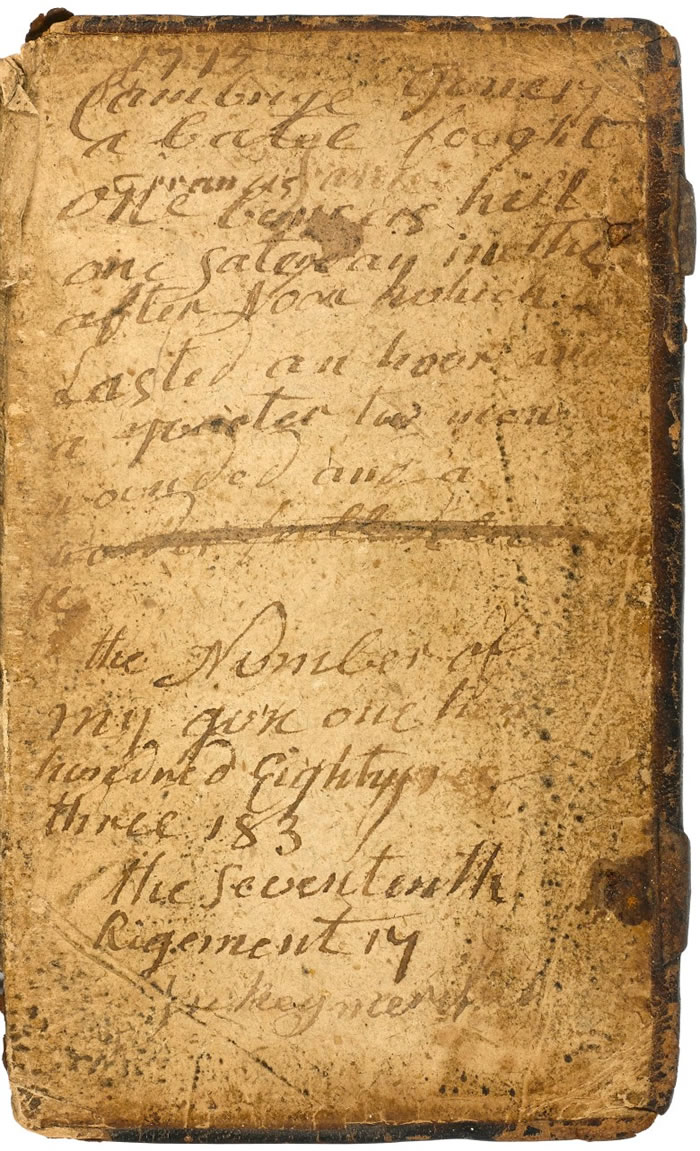 1775
Cambrige
a batel foght
Francis
one buncers hill
one Saterday in the
after Noon which
Lasted an hoor and
a quarter two men
wounded and a
the Number of
my gun one
hundred Eighty
three 183
the sevententh
Rigement 17